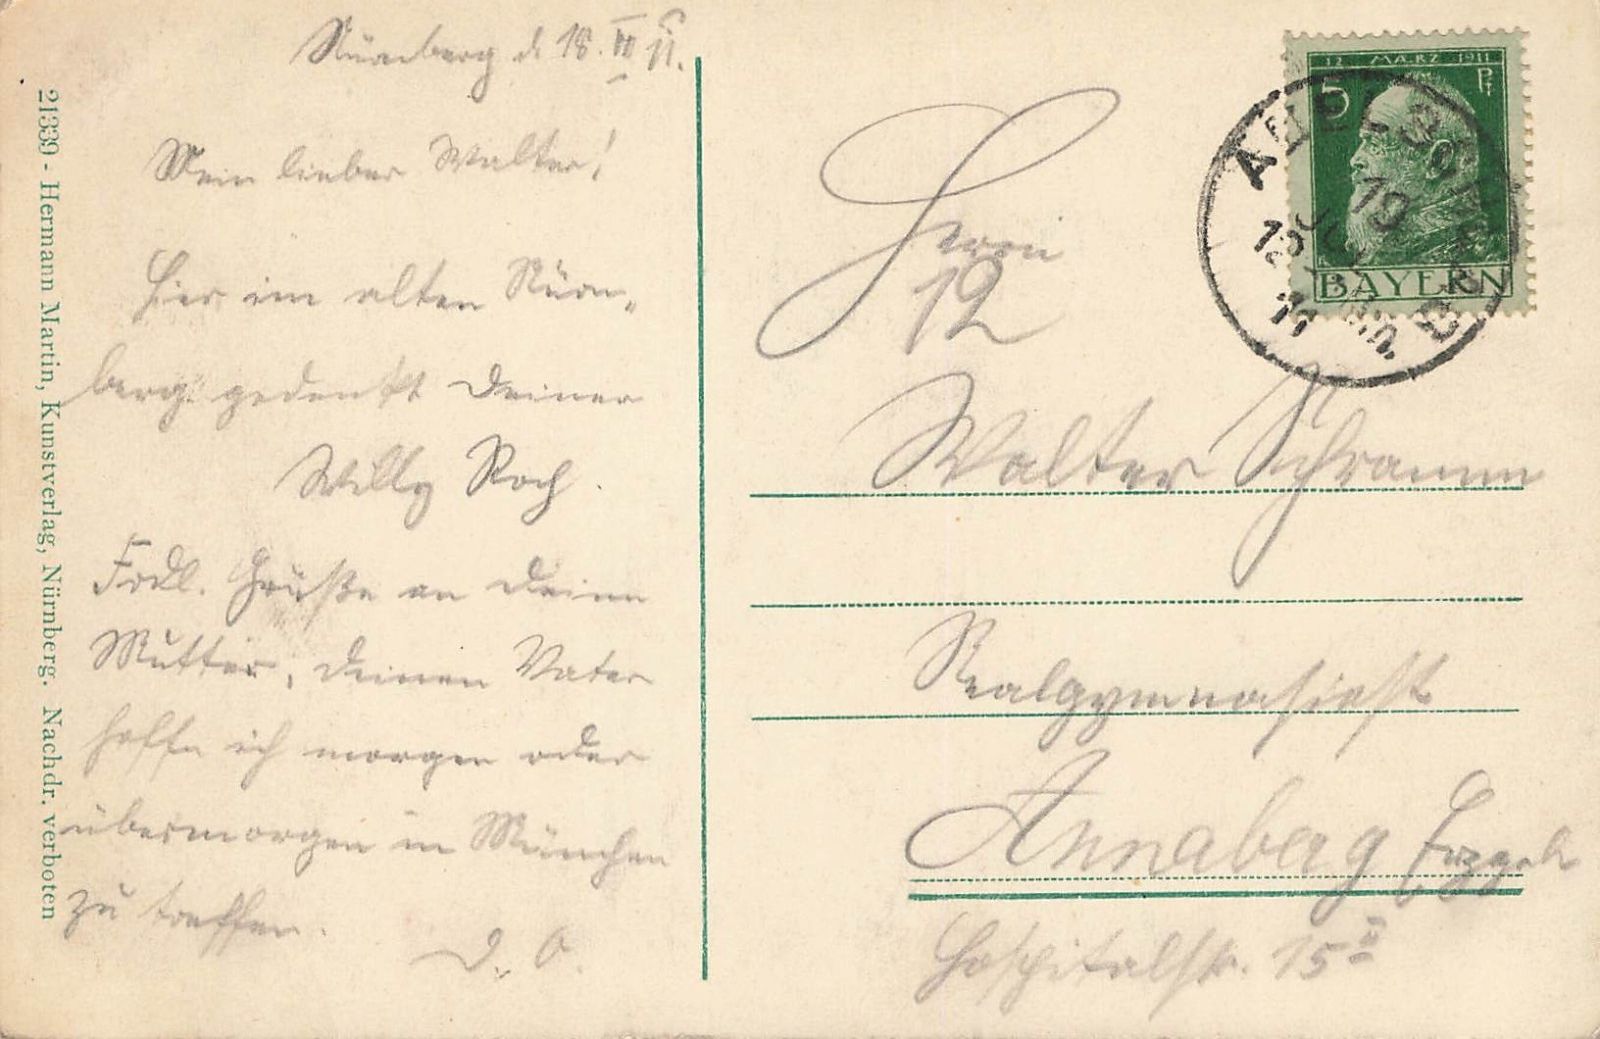 Nürnberg d. 18. VII 11.
Mein lieber Walter!
Hier im alten Nürn-
berg gedenkt Deiner
Willy Roch.
Frdl. Grüße an Deine
Mutter, Deinen Vater
hoffe ich morgen oder
übermorgen in München
zu treffen.
D. O.
21339 - Hermann Martin, Kunstverlag, Nürnberg. Nachdr. verboten
12. MÄRZ 1911
5 Pf
BAYERN
19
11
Herrn
12
Walter Schramm
Realgymnasiast
Annaberg Erzgeb
Hospitalstr. 15 II